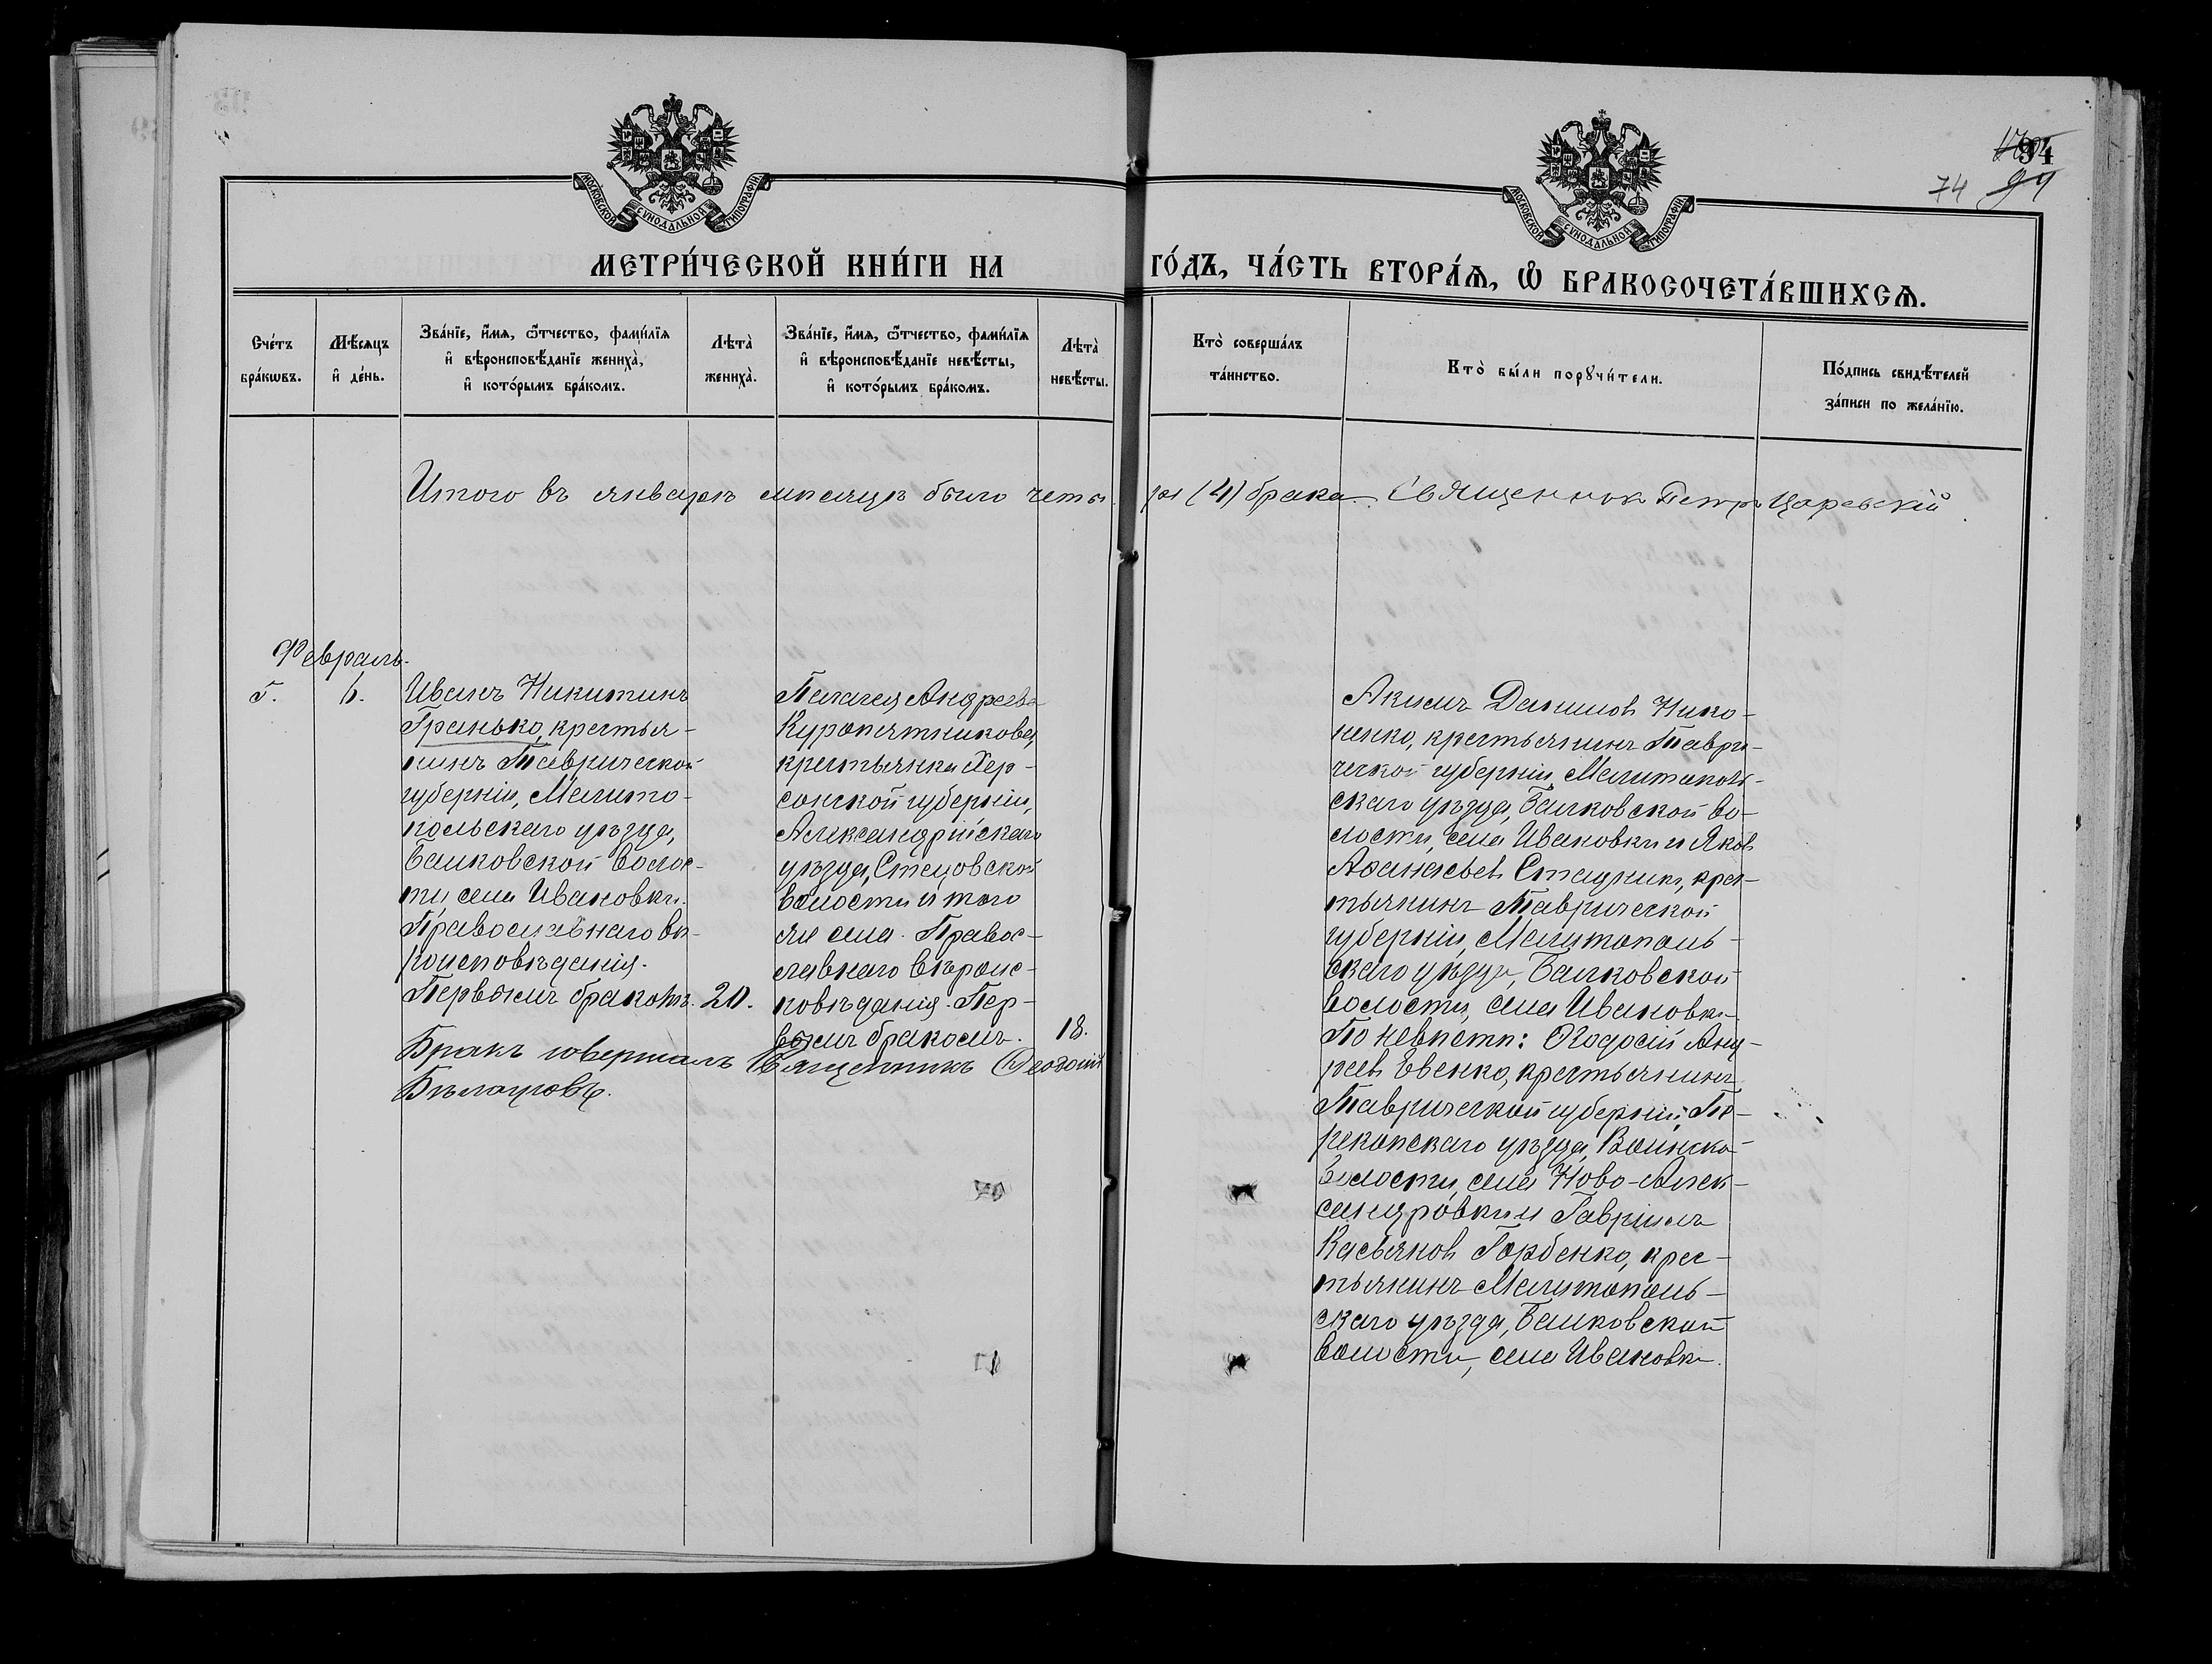 94
74 94
МОСКОВСКОЙ СѴНОДАЛЬНОЙ ТИПОГРАФІИ
МОСКОВСКОЙ СѴНОДАЛЬНОЙ ТИПОГРАФІИ
МЕТРИ́ЧЕСКОЙ КНИ́ГИ НА ГО́ДЪ, ЧА́СТЬ ВТОРА́Ѧ, Ѡ БРАКОСОЧЕТА́ВШИХСѦ.
Сче́тъ бра́кѡвъ.
Мѣ́сяцъ и҆ де́нь.
Зва́нїе, и҆́мя, ѻ҆́тчество, фами́лїя и҆ вѣроисповѣ́данїе жениха̀, и҆ кото́рымъ бра́комъ.
Лѣта̀ жениха̀.
Зва́нїе, и҆́мя, ѻ҆́тчество, фами́лїя и҆ вѣроисповѣ́данїе невѣ́сты, и҆ кото́рымъ бра́комъ.
Лѣта̀ невѣ́сты.
Кто̀ соверша́лъ та́инство.
Кто̀ бы́ли порꙋчи́тели.
По́дпись свидѣ́телей за́писи по жела́нїю.
Итого въ январѣ мѣсяцѣ было четы ре (4) брака. Священникъ Петръ Царевскій
Февраль.
5. 6.
Иванъ Никитинъ
Гранько, крестья-
нинъ Таврической
губерніи, Мелито-
польскаго уѣзда,
Балковской волос-
ти, села Ивановки.
Православнаго вѣ-
роисповѣданія.
Первымъ бракомъ. 20.
Пелагея Андреева
Куропятникова,
крестьянка Хер-
сонской губерніи,
Александрійскаго
уѣзда, Стецовской
волости и того
же села. Правос-
лавнаго вѣроис-
повѣданія. Пер-
вымъ бракомъ. 18.
Бракъ совершалъ Священникъ Ѳеодосій
Бѣлоусовъ.
Акимъ Данилов Нико-
ненко, крестьянинъ Таври-
ческой губерніи, Мелитополь-
скаго уѣзда, Балковской во-
лости, села Ивановки и Яков
Аѳанасьев Стадник, крес-
тьянинъ Таврической
губерніи, Мелитополь-
скаго уѣзда, Балковской
волости, села Ивановки.
По невѣстѣ: Ѳеодосій Анд-
реев Евенко, крестьянинъ
Таврической губерніи, Пе-
рекопскаго уѣзда, Воинско-
волости, села Ново-Алек-
сандровки и Гавріилъ
Касьянов Горбенко, крес-
тьянинъ Мелитополь-
скаго уѣзда, Балковской
волости, села Ивановки.